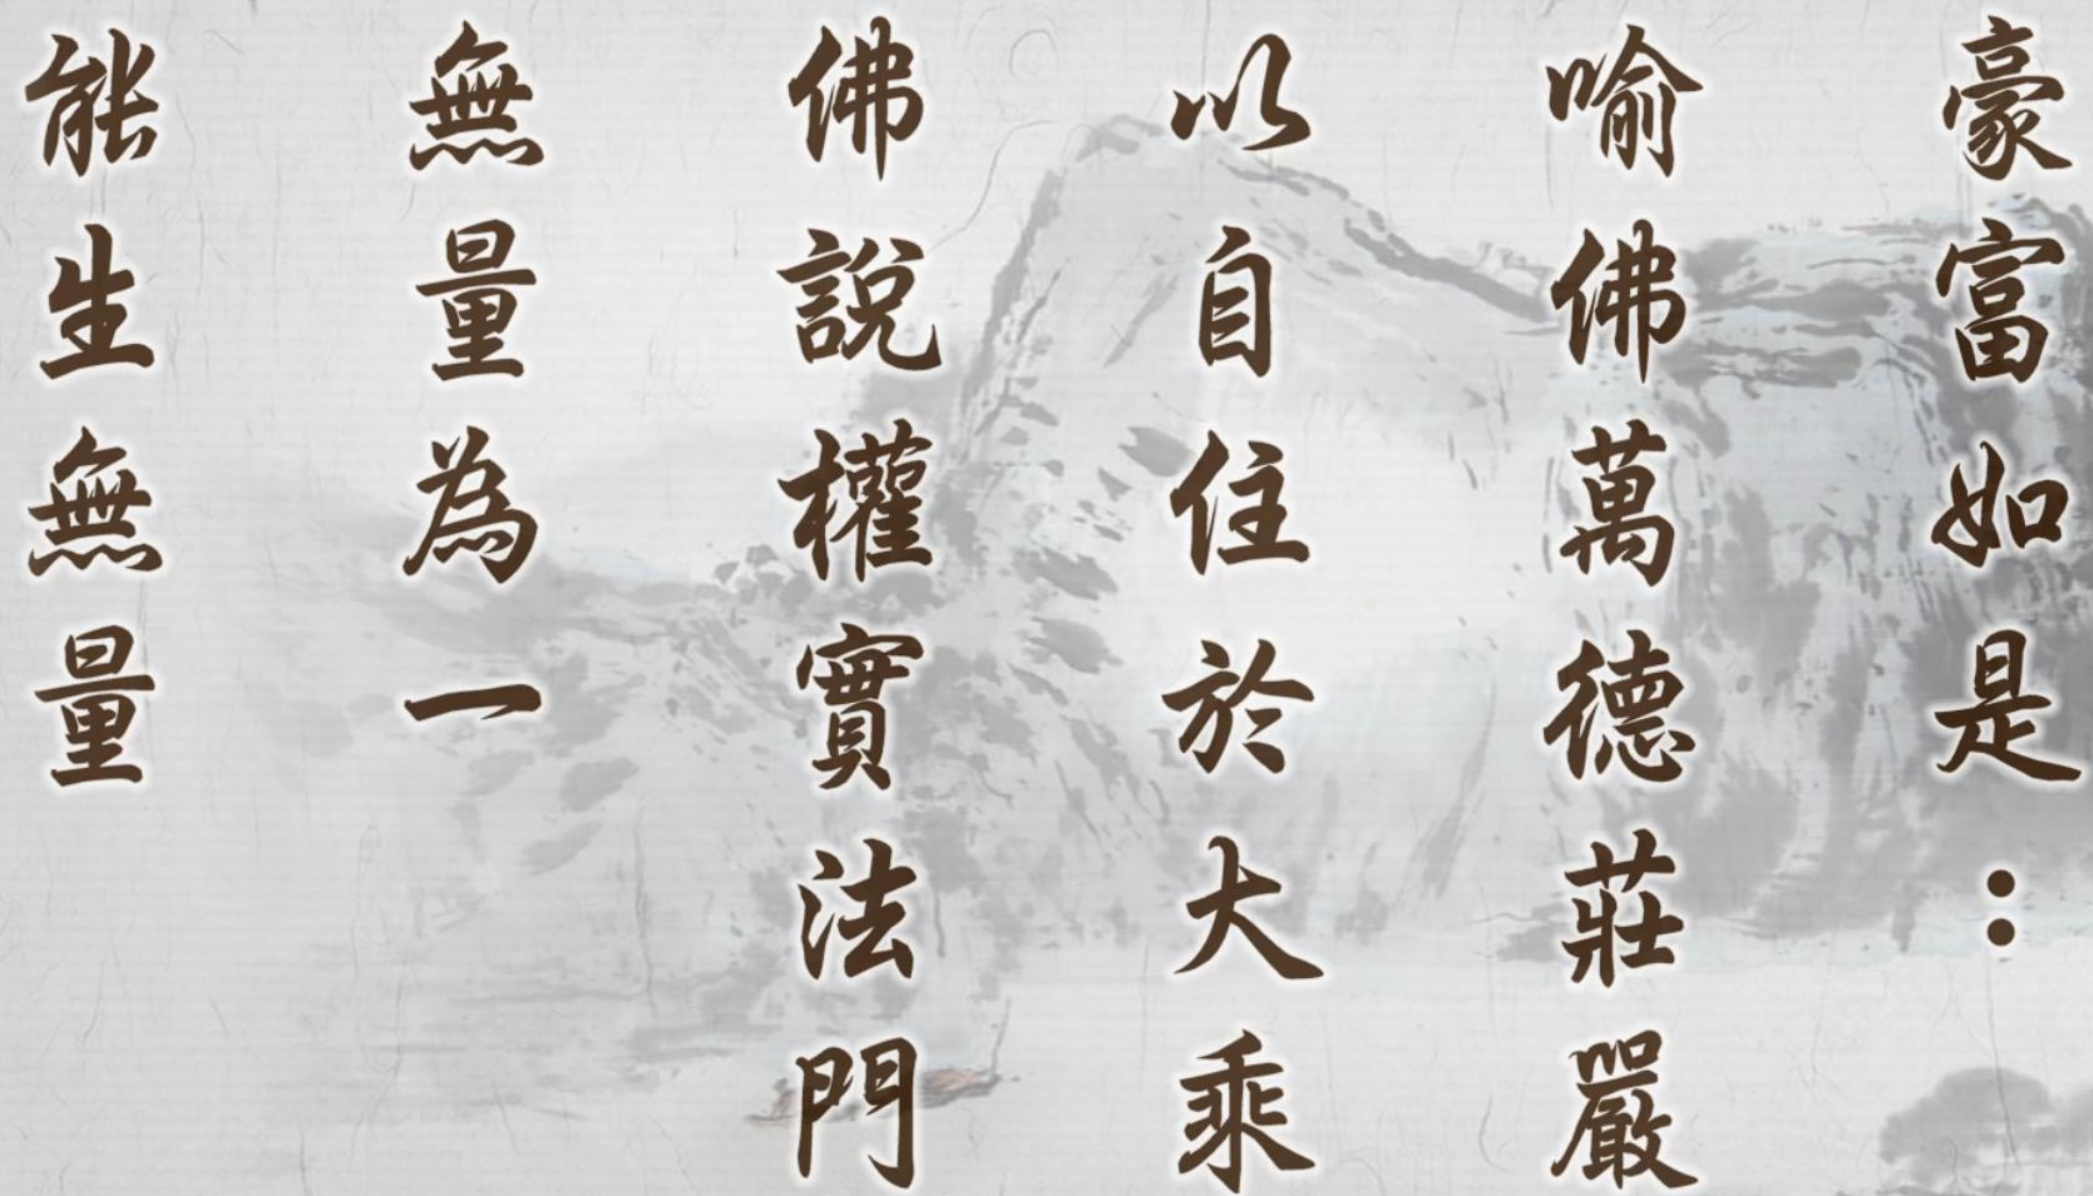 豪富如是：
喻佛萬德莊嚴
以自住於大乘
佛說權實法門
無量為一
能生無量